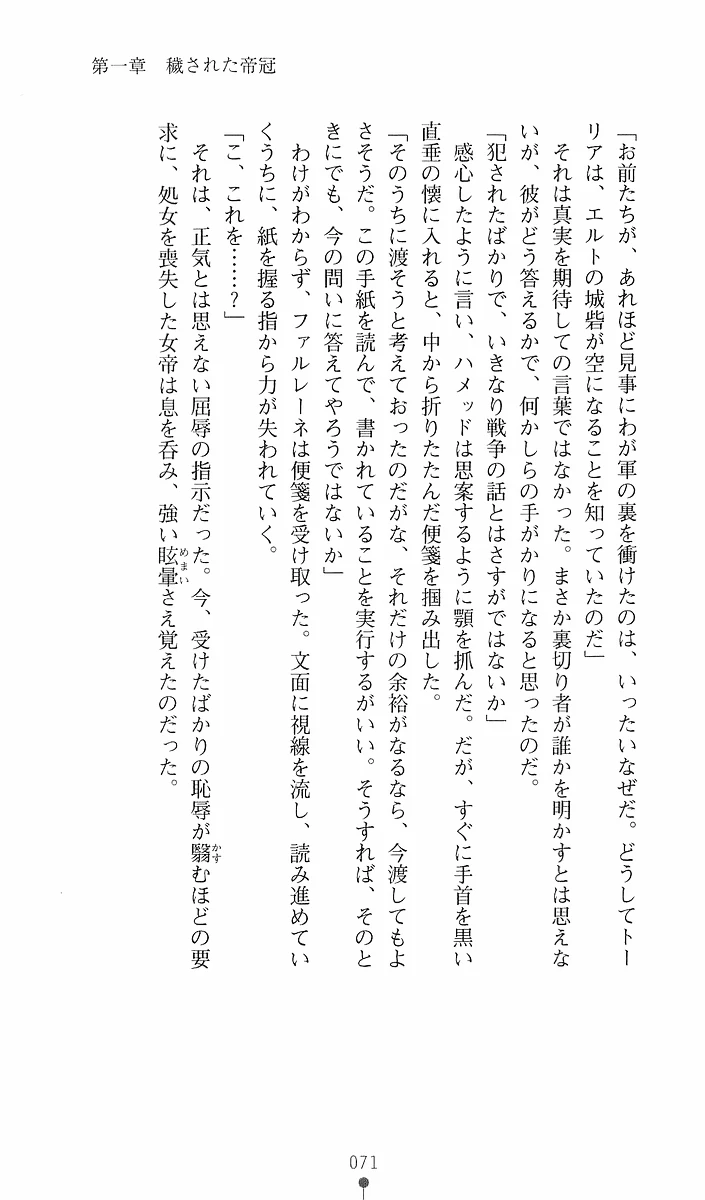 第一章　穢された帝冠
「お前たちが、あれほど見事にわが軍の裏を衝けたのは、いったいなぜだ。どうしてトー
リアは、エルトの城砦が空になることを知っていたのだ」
　それは真実を期待しての言葉ではなかった。まさか裏切り者が誰かを明かすとは思えな
いが、彼がどう答えるかで、何かしらの手がかりになると思ったのだ。
「犯されたばかりで、いきなり戦争の話とはさすがではないか」
　感心したように言い、ハメッドは思案するように顎を抓んだ。だが、すぐに手首を黒い
直垂の懐に入れると、中から折りたたんだ便箋を掴み出した。
「そのうちに渡そうと考えておったのだがな、それだけの余裕がなるなら、今渡してもよ
さそうだ。この手紙を読んで、書かれていることを実行するがいい。そうすれば、そのと
きにでも、今の問いに答えてやろうではないか」
　わけがわからず、ファルレーネは便箋を受け取った。文面に視線を流し、読み進めてい
くうちに、紙を握る指から力が失われていく。
「こ、これを……？」
　それは、正気とは思えない屈辱の指示だった。今、受けたばかりの恥辱が翳かすむほどの要
求に、処女を喪失した女帝は息を呑み、強い眩暈めまいさえ覚えたのだった。
071